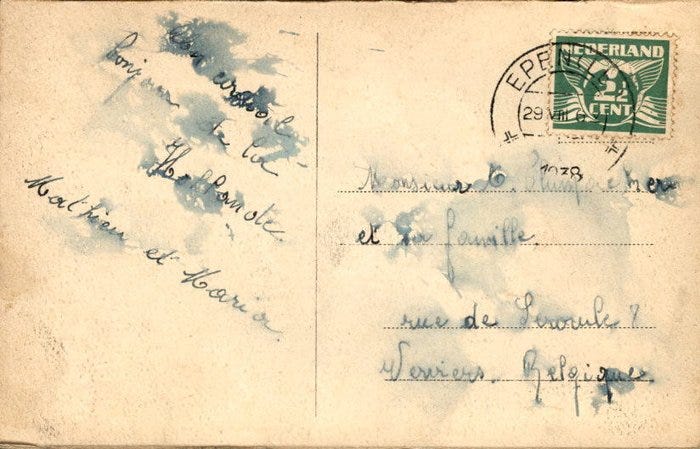 Un cordial
bonjour
de la
Hollande.
Mathieu et Maria.
NEDERLAND
2½
CENT
EPEN
29 VIII
1938
Monsieur
et sa famille.
rue de Séroule 7
Verviers. Belgique.